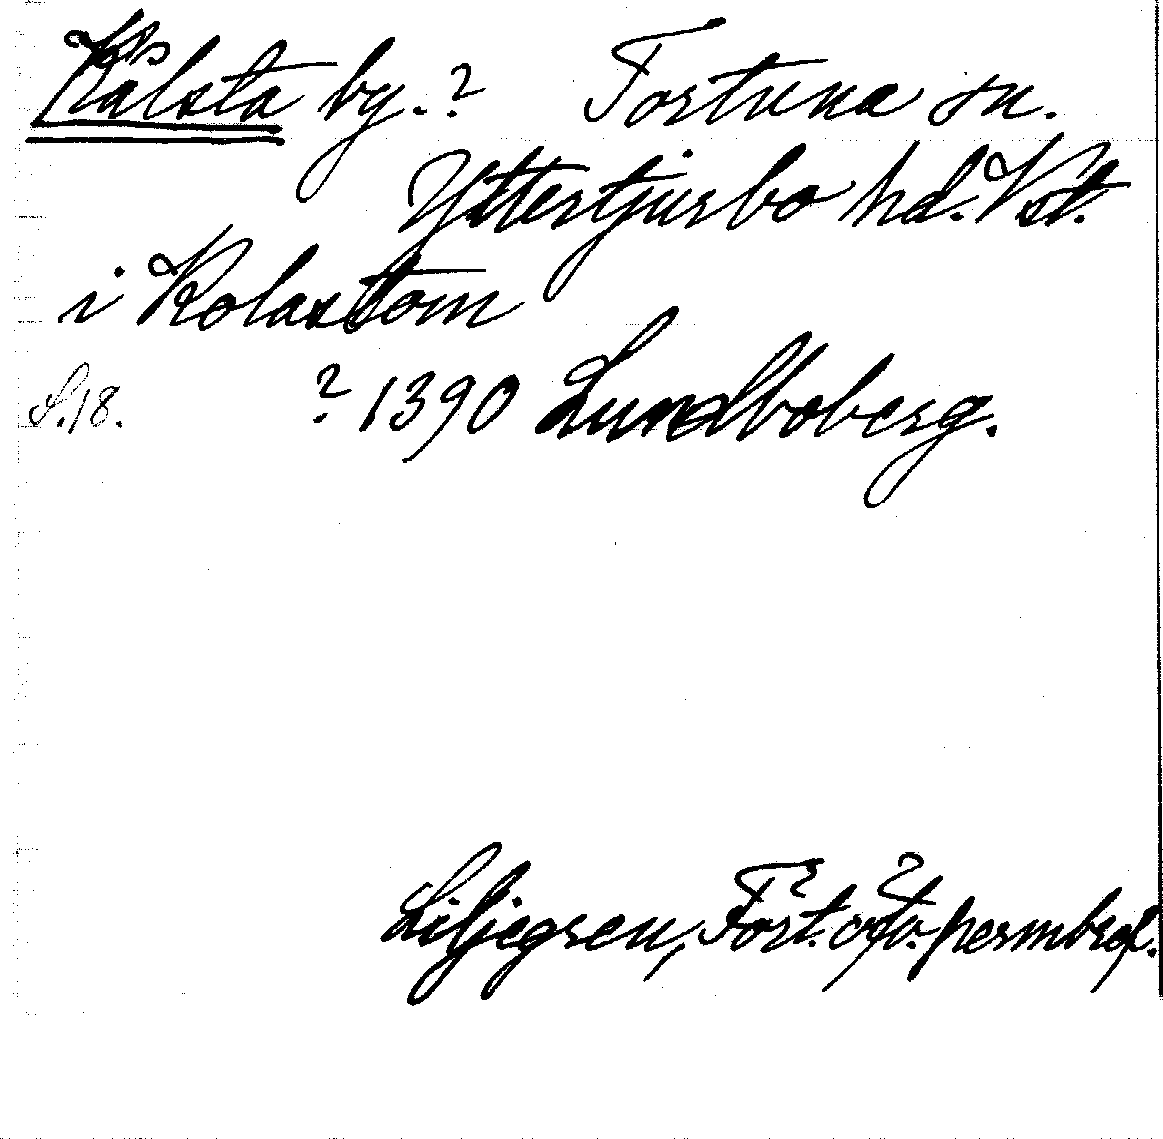 Kålsta by.? Fortuna sn.
Yttertjurbo hd. Vstl.
i Kolastom
S.18. ? 1390 Lundboberg.
Liljegren, Fört. perm.bref.